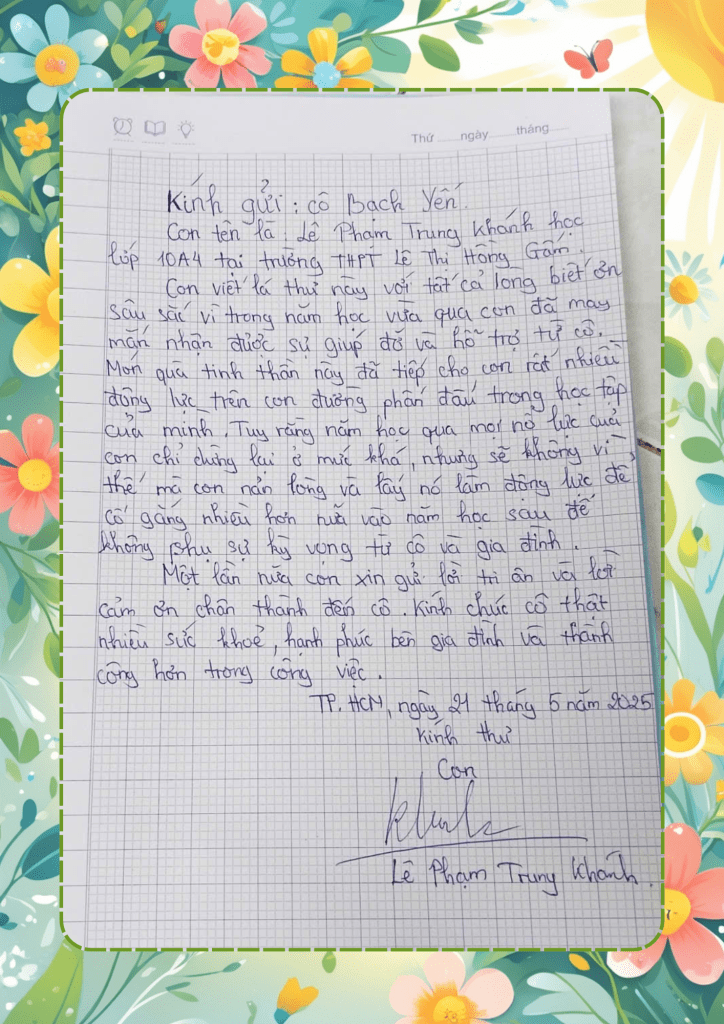 Thứ ngày tháng
Kính gửi : cô Bạch Yến.
Con tên là : Lê Phạm Trung Khánh học
lớp 10A4 tại trường THPT Lê Thị Hồng Gấm.
Con viết lá thư này với tất cả lòng biết ơn
sâu sắc vì trong năm học vừa qua con đã may
mắn nhận được sự giúp đỡ và hỗ trợ từ cô.
Món quà tinh thần này đã tiếp cho con rất nhiều
động lực trên con đường phấn đấu trong học tập
của mình. Tuy rằng năm học qua mọi nỗ lực của
con chỉ dừng lại ở mức khá, nhưng sẽ không vì
thế mà con nản lòng và lấy nó làm động lực để
cố gắng nhiều hơn nữa vào năm học sau để
không phụ sự kỳ vọng từ cô và gia đình.
Một lần nữa con xin gửi lời tri ân và lời
cảm ơn chân thành đến cô. Kính chúc cô thật
nhiều sức khoẻ, hạnh phúc bên gia đình và thành
công hơn trong công việc.
TP. HCM, ngày 21 tháng 5 năm 2025
Kính thư
Con
Khánh
Lê Phạm Trung Khánh.